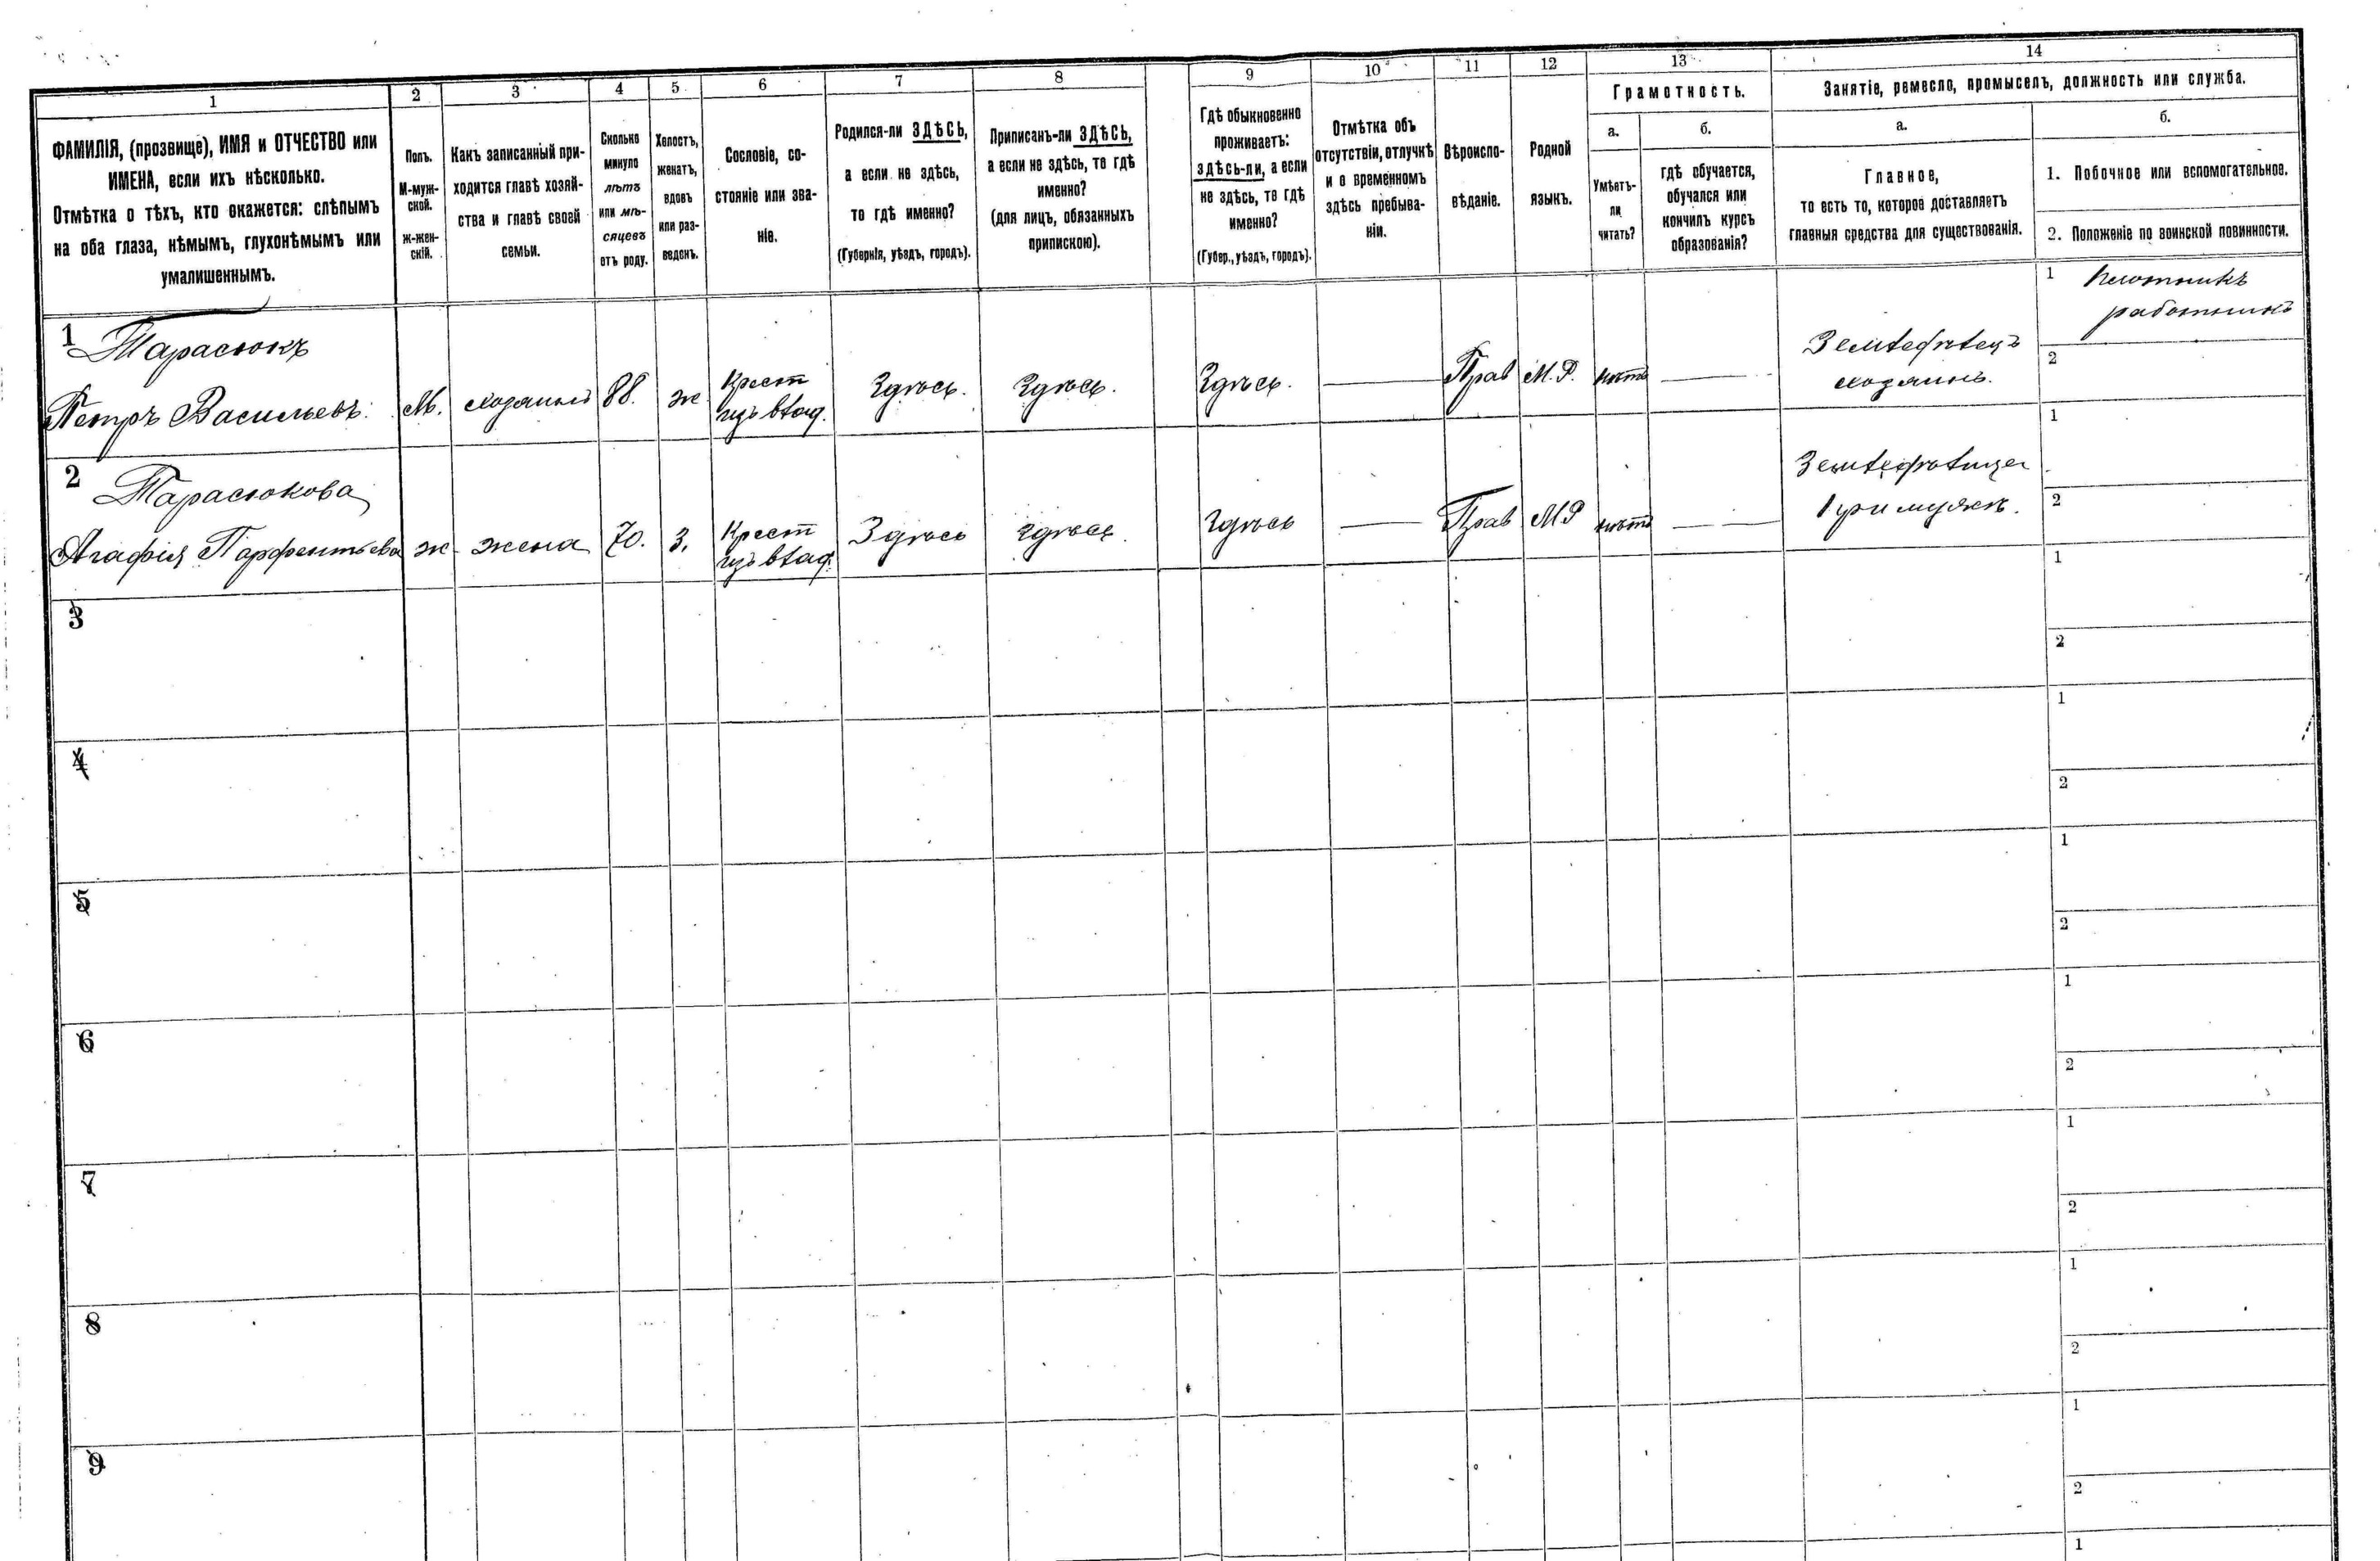 1 2 3 4 5 6 7 8 9 10 11 12 13 14
ФАМИЛІЯ, (прозвище), ИМЯ и ОТЧЕСТВО или
ИМЕНА, если ихъ нѣсколько.
Отмѣтка о тѣхъ, кто окажется: слѣпымъ
на оба глаза, нѣмымъ, глухонѣмымъ или
умалишеннымъ.
Полъ.
М-муж-
ской.
Ж-жен-
скій.
Какъ записанный при-
ходится главѣ хозяй-
ства и главѣ своей
семьи.
Сколько
минуло
лѣтъ
или мѣ-
сяцевъ
отъ роду.
Холостъ,
женатъ,
вдовъ
или раз-
веденъ.
Сословіе, со-
стояніе или зва-
ніе.
Родился-ли ЗДѢСЬ,
а если не здѣсь,
то гдѣ именно?
(Губернія, уѣздъ, городъ).
Приписанъ-ли ЗДѢСЬ,
а если не здѣсь, то гдѣ
именно?
(для лицъ, обязанныхъ
припискою).
Гдѣ обыкновенно
проживаетъ:
ЗДѢСЬ-ли, а если
не здѣсь, то гдѣ
именно?
(Губер., уѣздъ, городъ).
Отмѣтка объ
отсутствіи, отлучкѣ
и о временномъ
здѣсь пребыва-
ніи.
Вѣроиспо-
вѣданіе.
Родной
языкъ.
Грамотность.
а.
Умѣетъ-
ли
читать?
б.
гдѣ обучается,
обучался или
кончилъ курсъ
образованія?
Занятіе, ремесло, промыселъ, должность или служба.
а.
Главное,
то есть то, которое доставляетъ
главныя средства для существованія.
б.
1. Побочное или вспомогательное.
2. Положеніе по воинской повинности.
1 Тарасюкъ
Петръ Васильевъ.
М.
хозяинъ
88.
ж
Крест
изъ влад.
Здѣсь.
Здѣсь.
Здѣсь.
Прав
М.Р.
нѣтъ
Земледѣлецъ
хозяинъ.
1 Плотникъ
работникъ
2
2 Тарасюкова
Агафія Парфентьева
ж
жена
70.
з.
Крест
изъ влад.
Здѣсь
здѣсь.
здѣсь
Прав
МР
нѣтъ
Земледѣлица
при мужѣ.
1
2
3
1
2
4
1
2
5
1
2
6
1
2
7
1
2
8
1
2
9
1
2
1